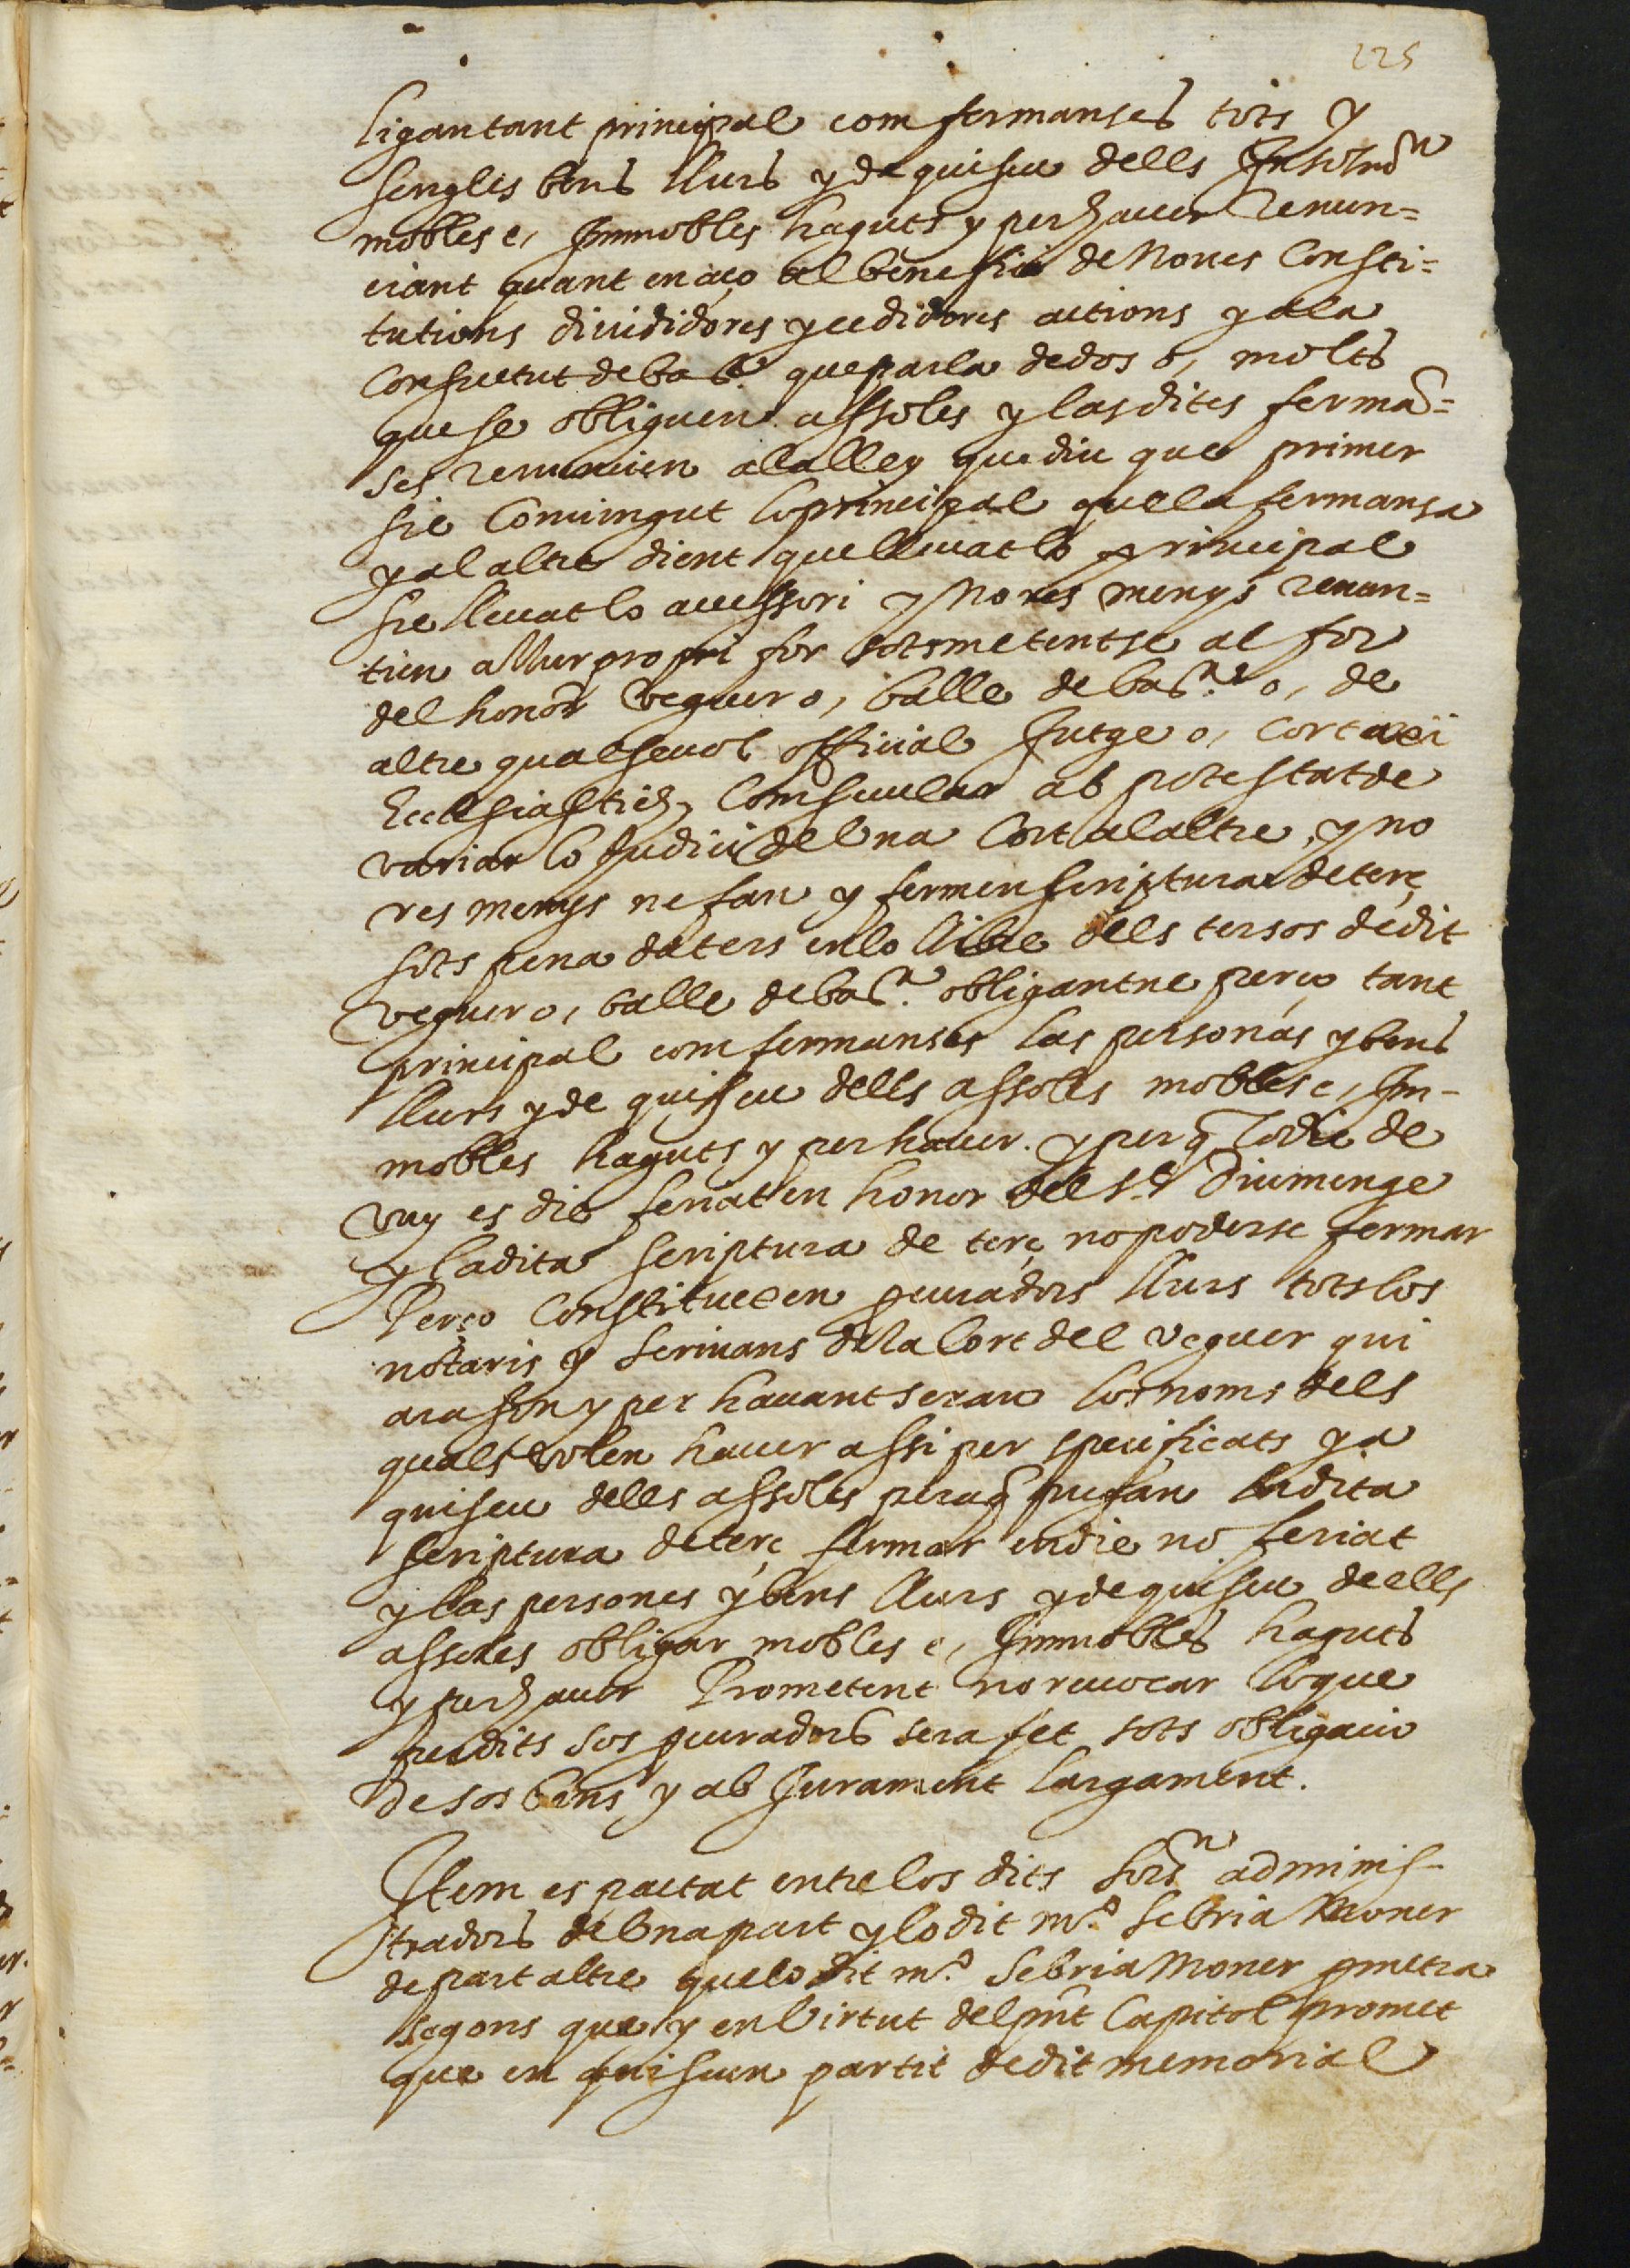 225
ligantant principal com fermanses tots y
sengles bens llurs y de quiscu dells Insolidũ
mobles e, Immobles haguts y per hauer Renun=
ciant quant en aço al benefici de Noues Consti=
tutions diuididores y cedidores actions y a la
Consuetut de barª. que parla de dos o, molts
que se obliguen assoles y las dites fermã=
ses renuncien a la lley que diu que primer
sie Conuingut lo principal que la fermansa
y al altre dient que lleuat lo principal
sie lleuat lo accessori y No res menys renun=
tien a llur propri for sotsmetentse al for
del honor veguer o, balle de barª. o, de
altre qualseuol official Jutge o, Cort axi
Ecclesiastich, Com secular ab potestat de
variar lo Judici de Una Cort al altre, y no
res menys ne fan y fermen scriptura de terç
sots pena de ters en lo llibre dels tersos de dit
veguer o, balle de barª. obligantne perço tant
principal com fermanses las personas y bens
llurs y de quiscu dells assoles mobles e, Im-
mobles haguts y per hauer. y perq̃ lo die de
vuy es die feriat en honor del st. Diumenge
y la dita scriptura de terç no poderse fermar
Perço Constitueexen ꝓcuradors llurs tots los
notaris y scriuans de la Cort del veguer qui
ara son y per hauant seran los noms dels
quals volen hauer assi per specificats y a
quiscu dells assoles peraq̃ pugan la dita
scriptura de terç fermar en die no feriat
y las persones y bens llurs y de quiscu de ells
assoles obligar mobles e, Immobles haguts
y per hauer Prometent no reuocar lo que
per dits sos ꝓcuradors sera fet sots obligacio
de sos bens y ab Jurament largament.
Item es pactat entre los dits Sors adminis-
tradors de Una part y lo dit mº. Sebria Moner
de part altre que lo dit mº. Sebria Moner ꝓmetra
segons que y en Virtut del pñt Capitol promet
que en quiscun partit de dit memorial